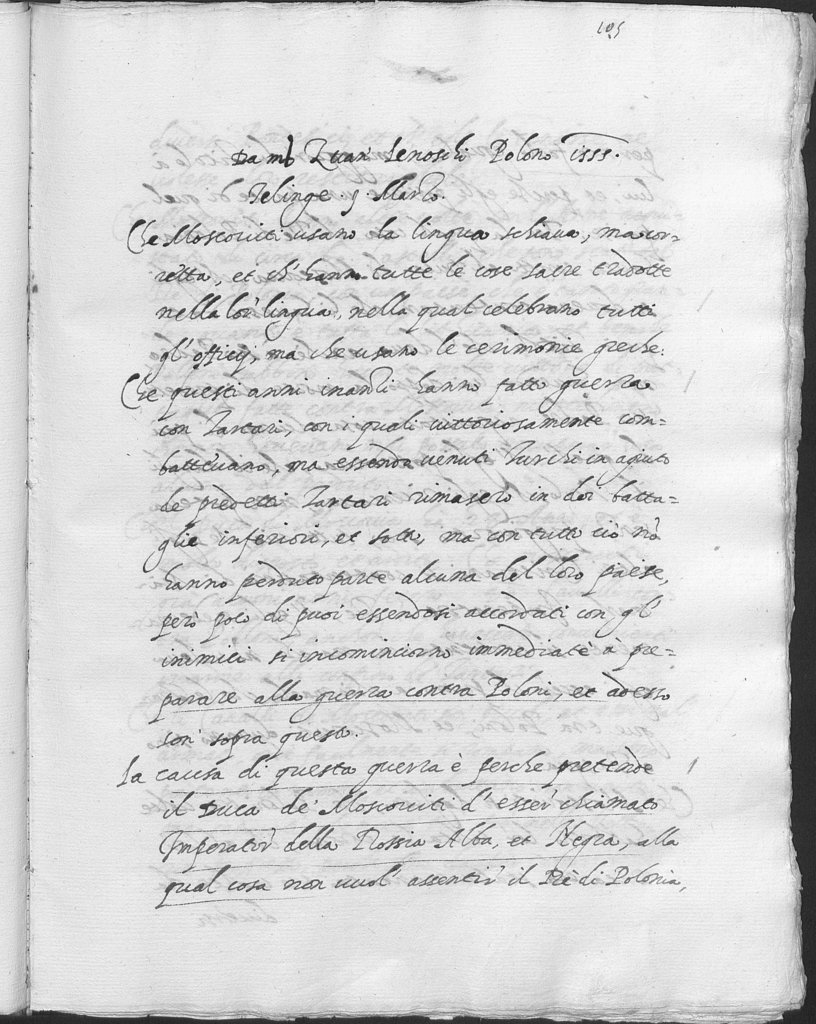 105
Da mb Zuan Lenoschi Polono 1555.
Telinge 9 Marzo.
Che Moscoviti usano la lingua schiava, ma cor=
retta, et ch'hanno tutte le cose sacre tradotte
nella lor' lingua, nella qual celebrano tutti
gl' officij, ma che usano le cerimonie greche.
Che questi anni inanzi hanno fatto guerra
con Tartari, con i quali vittoriosamente com=
battevano, ma essendo venuti Turchi in aguto
de predetti Tartari rimasero in doi batta=
glie inferiori, et sotto, ma con tutto ciò nõ
hanno perduto parte alcuna del loro paese,
però poco di puoi essendosi accordati con gl'
inimici si incominciorno immediatè à pre=
parare alla guerra contra Poloni, et adesso
son' sopra questo.
La causa di questa guerra è perche pretende
il Duca de' Moscoviti d' esser chiamato
Imperator della Rossia Alba, et Negra, alla
qual cosa non vuol' assentir il Rè di Polonia,